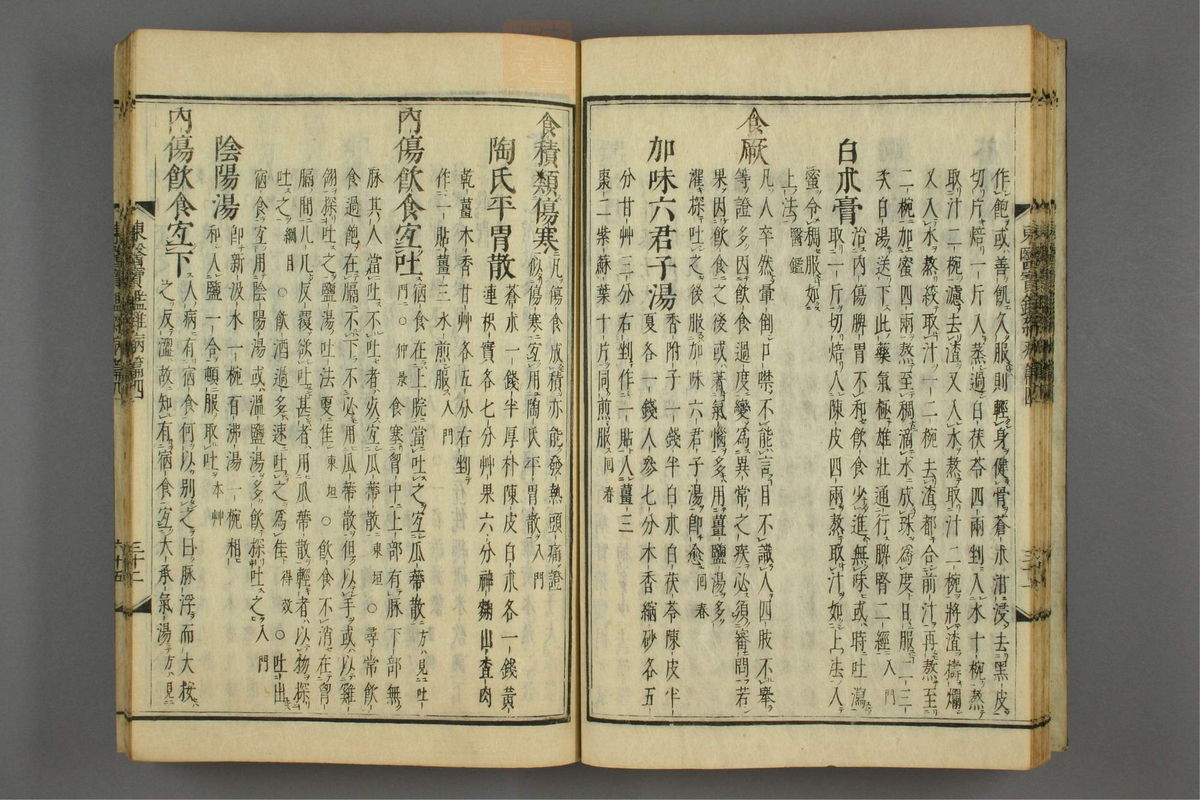 作飽或善飢久服則輕身健骨蒼朮泔浸去黑皮
切片焙一斤入蒸過白茯苓四兩剉入水十椀熬
取汁二椀濾去渣又入水熬取汁二椀將渣擣爛
又入水熬絞取汁一二椀去渣都合前汁再熬至
二椀加蜜四兩熬至稠滴水成珠爲度日服二三
次白湯送下此藥氣極雄壯通行脾腎二經入門
白朮膏
治內傷脾胃不和飮食少進無味或時吐瀉
白朮一斤切焙入陳皮四兩熬取汁如上法入
蜜令稠服如
上法醫鑑
食厥
凡人卒然暈倒口噤不能言目不識人四肢不擧
等證多因飮食過度變爲異常之疾必須審問若
果因飮食之後或著氣惱多用薑鹽湯多
灌探吐之後服加味六君子湯卽愈回春
加味六君子湯
香附子一錢半白朮白茯苓陳皮半
夏各一錢人參七分木香縮砂各五
分甘艸三分右剉作一貼入薑三
棗二紫蘇葉十片同煎服回春
食積類傷寒
凡傷食成積亦能發熱頭痛證
似傷寒宜用陶氏平胃散入門
陶氏平胃散
蒼朮一錢半厚朴陳皮白朮各一錢黃
連枳實各七分艸果六分神麴山査肉
乾薑木香甘艸各五分右剉
作一貼薑三水煎服入門
內傷飮食宜吐
宿食在上脘當吐之宜瓜蒂散方見吐
門○仲景食塞胷中上部有脉下部無
脉其人當吐不吐者死宜瓜蒂散東垣○尋常飮
食過飽在膈不下不必用瓜蒂散但以手或以雞
翎探吐之鹽湯吐法更佳東垣○飮食不消在胷
膈間兀兀反覆欲吐甚者用瓜蒂散輕者以物探
吐之綱目○飮酒過多速吐之爲佳得效○吐出
宿食宜用陰陽湯或溫鹽湯多飮探吐之入門
陰陽湯
卽新汲水一椀百沸湯一椀相
和入鹽一合頓服取吐本艸
內傷飮食宜下
人病有宿食何以別之曰脉浮而大按
之反濇故知有宿食宜大承氣湯方見
東醫寶鑑雜病篇四
三十二